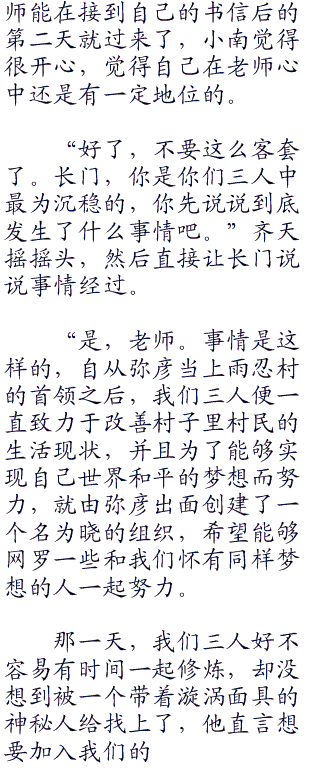 师能在接到自己的书信后的
第二天就过来了，小南觉得
很开心，觉得自己在老师心
中还是有一定地位的。
“好了，不要这么客套
了。长门，你是你们三人中
最为沉稳的，你先说说到底
发生了什么事情吧。”齐天
摇摇头，然后直接让长门说
说事情经过。
“是，老师。事情是这
样的，自从弥彦当上雨忍村
的首领之后，我们三人便一
直致力于改善村子里村民的
生活现状，并且为了能够实
现自己世界和平的梦想而努
力，就由弥彦出面创建了一
个名为晓的组织，希望能够
网罗一些和我们怀有同样梦
想的人一起努力。
那一天，我们三人好不
容易有时间一起修炼，却没
想到被一个带着漩涡面具的
神秘人给找上了，他直言想
要加入我们的